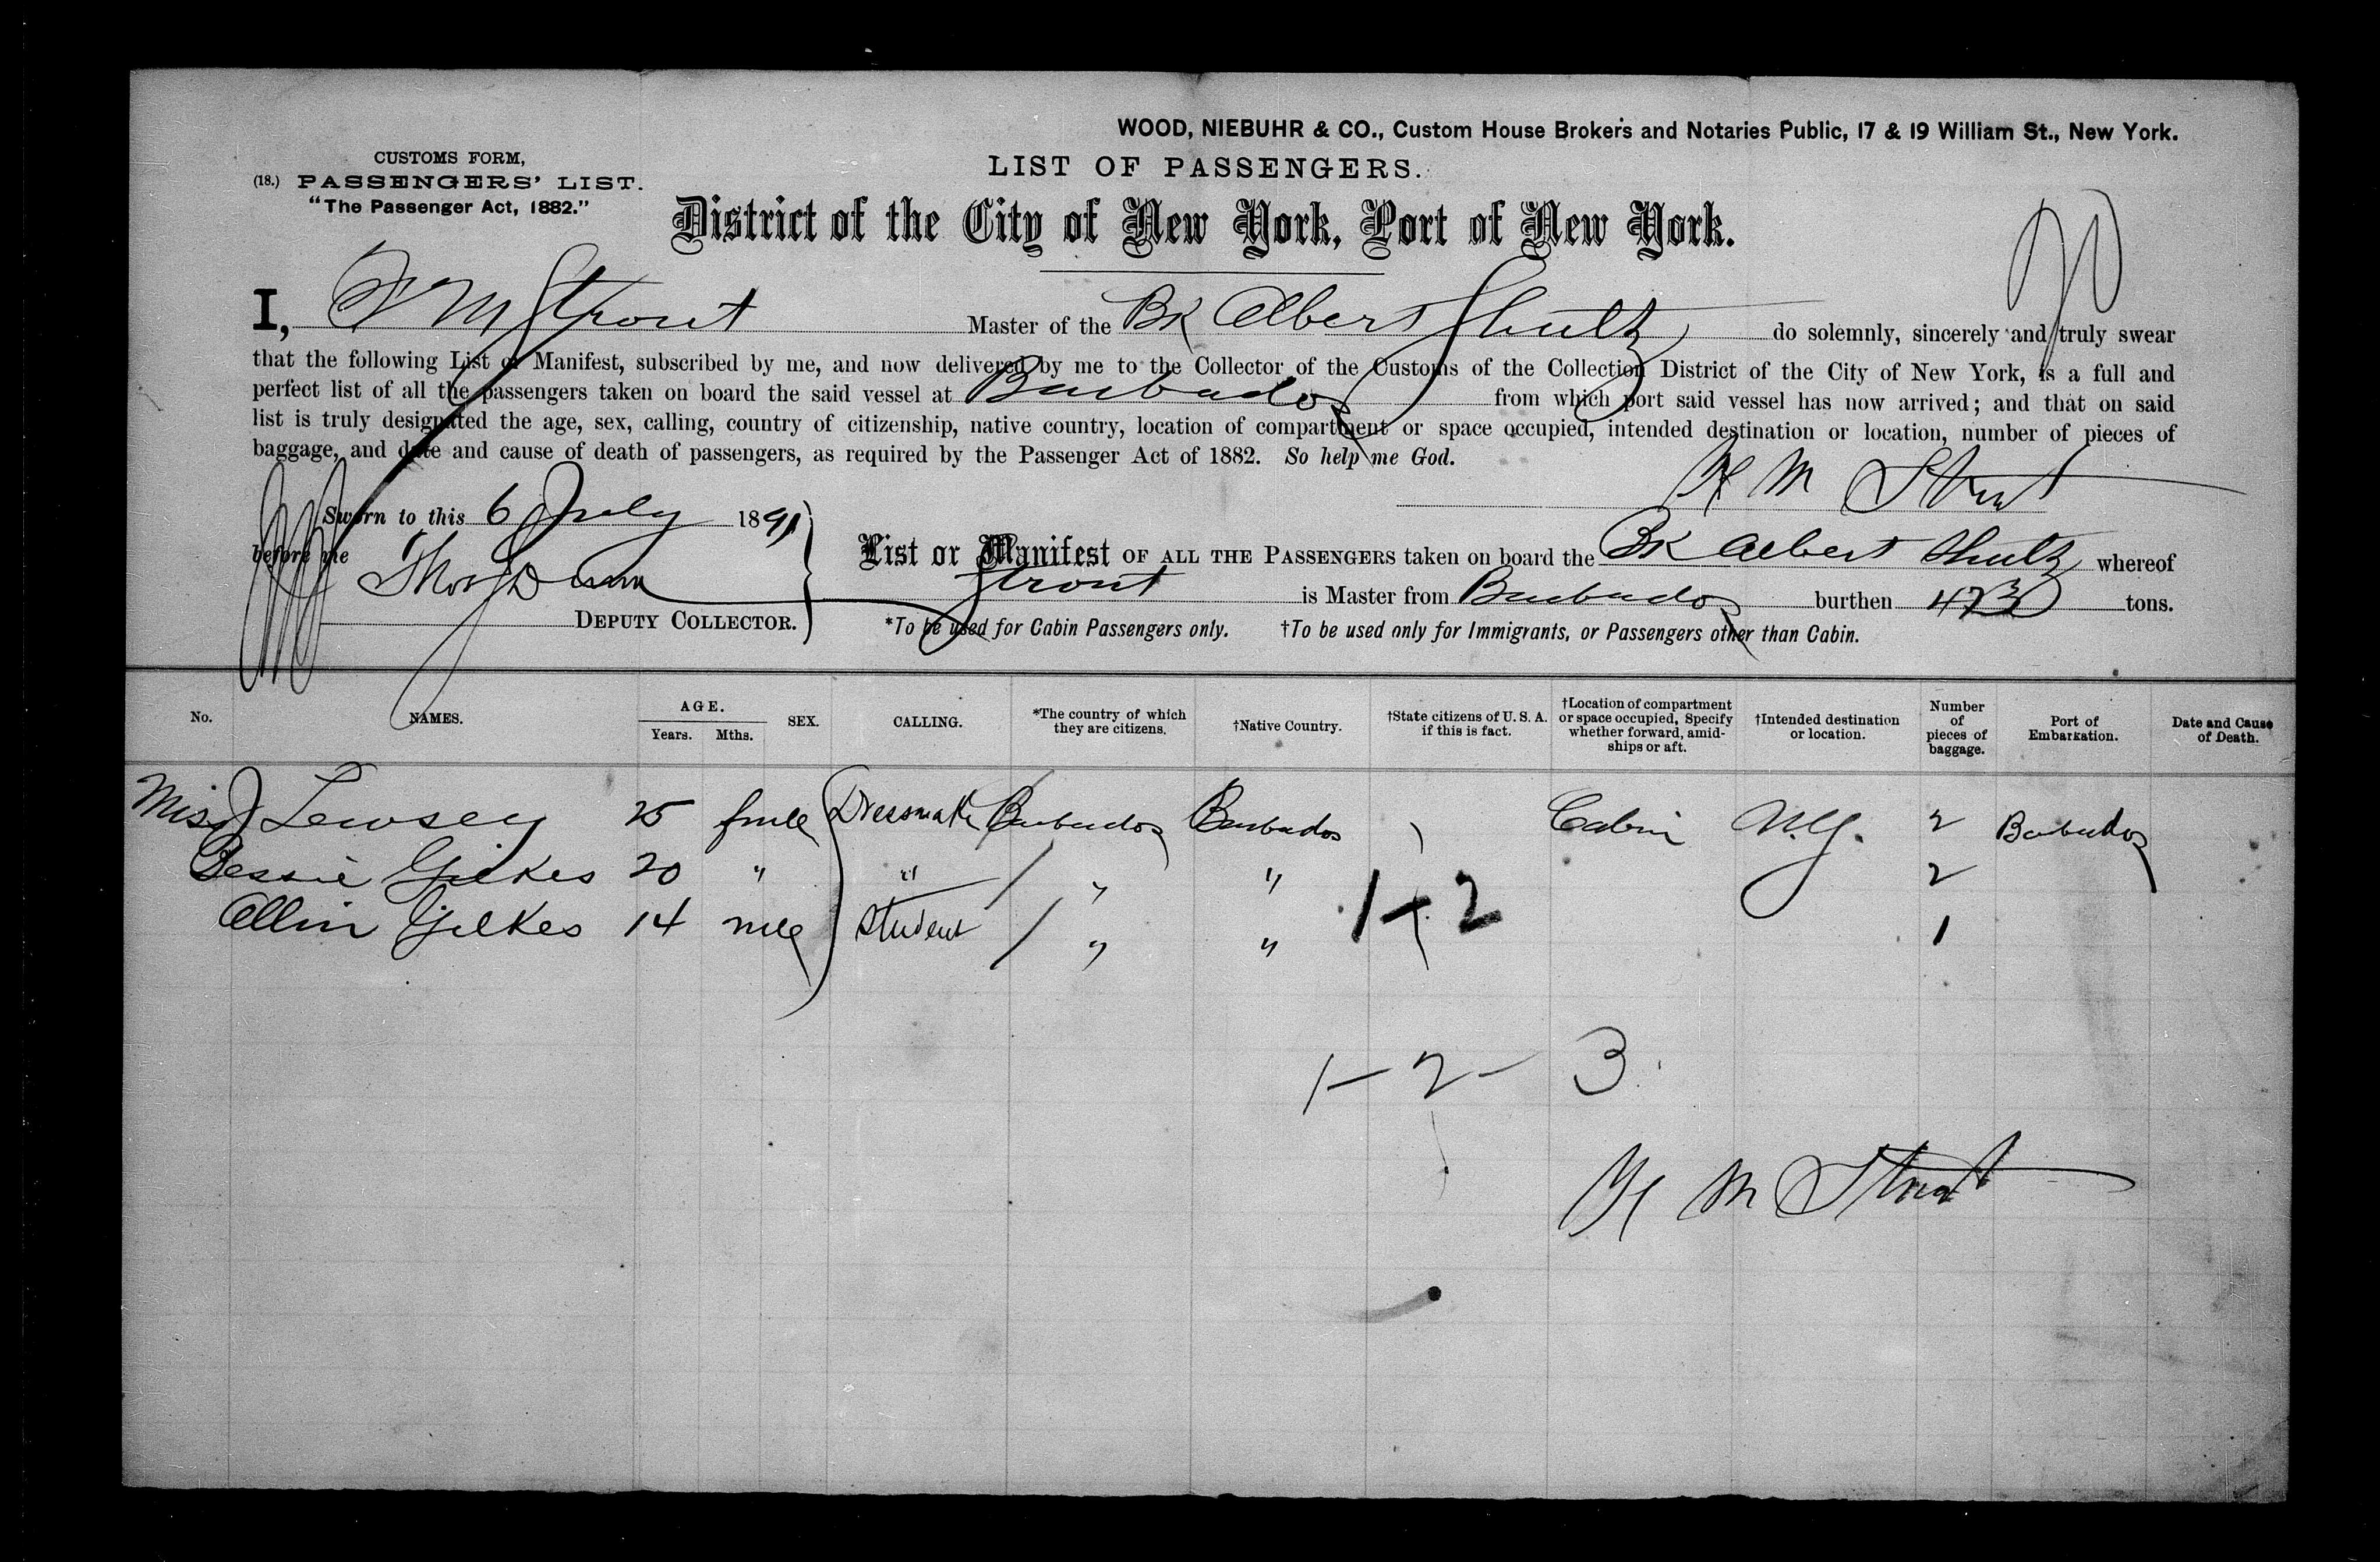 WOOD, NIEBUHR & CO., Custom House Brokers and Notaries Public, 17 & 19 William St., New York.
CUSTOMS FORM,
(18.) PASSENGERS' LIST.
"The Passenger Act, 1882."
LIST OF PASSENGERS.
District of the City of New York, Port of New York.
I, M Strout Master of the Bk Albert Shultz do solemnly, sincerely and truly swear
that the following List or Manifest, subscribed by me, and now delivered by me to the Collector of the Customs of the Collection District of the City of New York, is a full and
perfect list of all the passengers taken on board the said vessel at Barbados from which port said vessel has now arrived; and that on said
list is truly designated the age, sex, calling, country of citizenship, native country, location of compartment or space occupied, intended destination or location, number of pieces of
baggage, and date and cause of death of passengers, as required by the Passenger Act of 1882. So help me God.
M Strout
Sworn to this 6 July 1891
before me
DEPUTY COLLECTOR.
List or Manifest OF ALL THE PASSENGERS taken on board the Bk Albert Shultz whereof
Strout is Master from Barbados burthen 473 tons.
*To be used for Cabin Passengers only. †To be used only for Immigrants, or Passengers other than Cabin.
No. NAMES. AGE. Years. Mths. SEX. CALLING. *The country of which they are citizens. †Native Country. †State citizens of U. S. A. if this is fact. †Location of compartment or space occupied, Specify whether forward, amidships or aft. †Intended destination or location. Number of pieces of baggage. Port of Embarkation. Date and Cause of Death.
Miss J Lewsey 25 fmle Dressmak Barbados Barbados Cabin N.Y. 2 Barbados
Bessie Gilkes 20 " " " " 2
Allin Gilkes 14 mle Student " " 1
1 - 2
1 - 2 - 3
M Strout